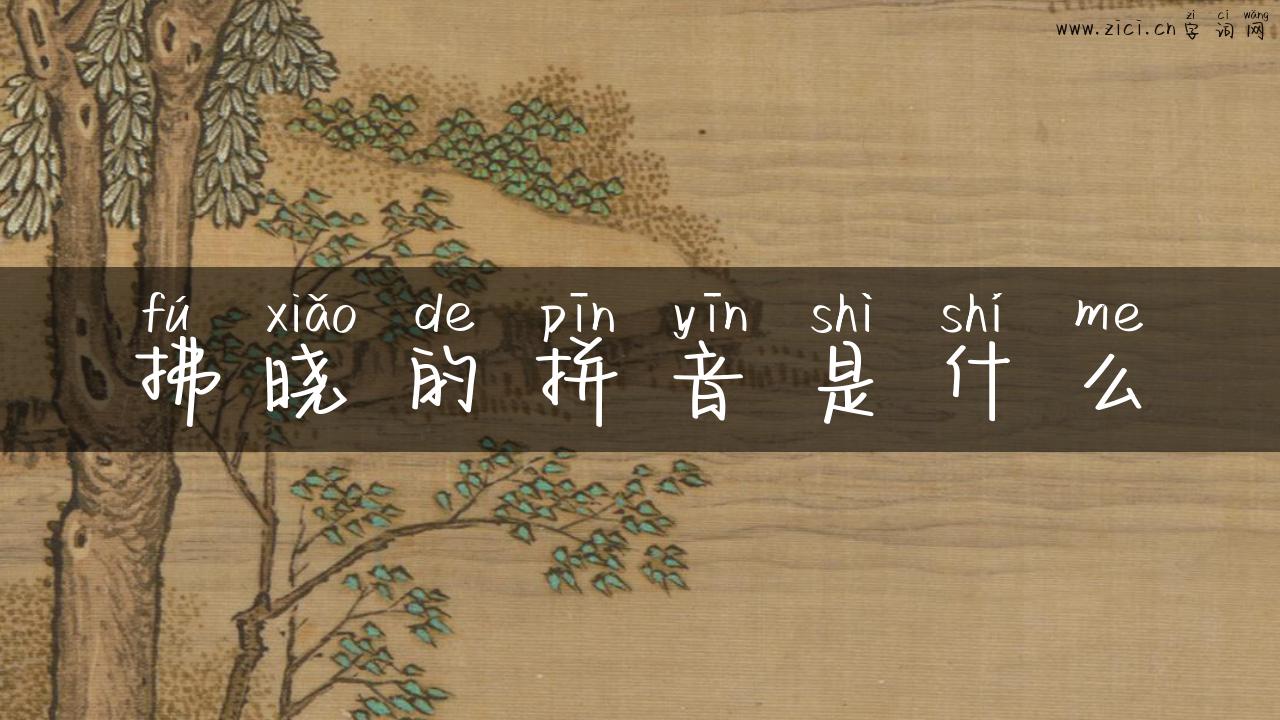 zì cí wǎng
www.zici.cn字词网
fú xiǎo de pīn yīn shì shí me
拂晓的拼音是什么